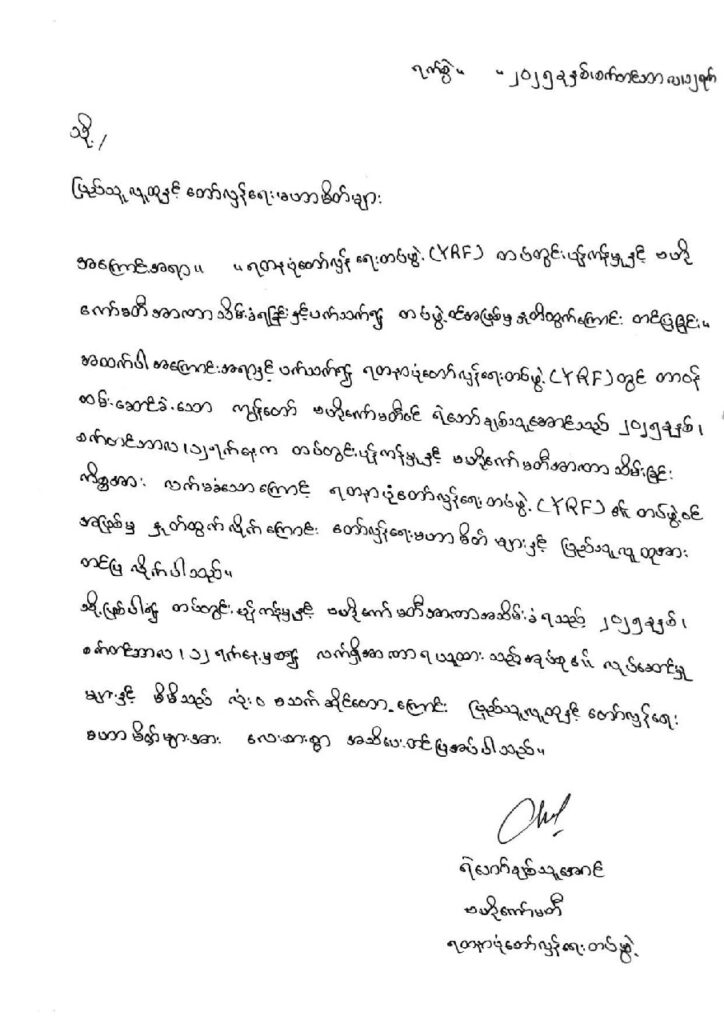 ရက်စွဲ။ ။ ၂၀၂၅ ခုနှစ်၊ စက်တင်ဘာလ၊ ၁၂ ရက်
သို့/
ပြည်သူလူထုနှင့် တော်လှန်ရေးမဟာမိတ်များ
အကြောင်းအရာ။ ။ ရတနာပုံတော်လှန်ရေးတပ်ဖွဲ့ (YRF) တပ်တွင်းပုန်ကန်မှုနှင့် ဗဟို
ကော်မတီအာဏာသိမ်းခံရခြင်းနှင့်ပက်သက်၍ တပ်ဖွဲ့ဝင်အဖြစ်မှ နှုတ်ထွက်ကြောင်း တင်ပြခြင်း။
အထက်ပါအကြောင်းအရာနှင့် ပက်သက်၍ ရတနာပုံတော်လှန်ရေးတပ်ဖွဲ့ (YRF) တွင် တာဝန်
ထမ်းဆောင်ခဲ့သော ကျွန်တော် ဗဟိုကော်မတီဝင် ရဲဘော်ချစ်သူအောင်သည် ၂၀၂၅ ခုနှစ်၊
စက်တင်ဘာလ၊ ၁၂ ရက်နေ့က တပ်တွင်းပုန်ကန်မှုနှင့် ဗဟိုကော်မတီအာဏာသိမ်းခြင်း
ကိစ္စအား လက်မခံသောကြောင့် ရတနာပုံတော်လှန်ရေးတပ်ဖွဲ့ (YRF) ၏ တပ်ဖွဲ့ဝင်
အဖြစ်မှ နှုတ်ထွက်လိုက်ကြောင်း တော်လှန်ရေးမဟာမိတ်များနှင့် ပြည်သူလူထုအား
တင်ပြလိုက်ပါသည်။
သို့ဖြစ်ပါ၍ တပ်တွင်းပုန်ကန်မှုနှင့် ဗဟိုကော်မတီအာဏာအသိမ်းခံရသည့် ၂၀၂၅ ခုနှစ်၊
စက်တင်ဘာလ၊ ၁၂ ရက်နေ့မှစ၍ လက်ရှိအာဏာရယူထားသည့်အုပ်စု၏ လုပ်ဆောင်မှု
များနှင့် မိမိသည် လုံးဝ မသက်ဆိုင်တော့ကြောင်း ပြည်သူလူထုနှင့် တော်လှန်ရေး
မဟာမိတ်များအား လေးစားစွာ အသိပေးတင်ပြအပ်ပါသည်။
ရဲဘော်ချစ်သူအောင်
ဗဟိုကော်မတီ
ရတနာပုံတော်လှန်ရေးတပ်ဖွဲ့